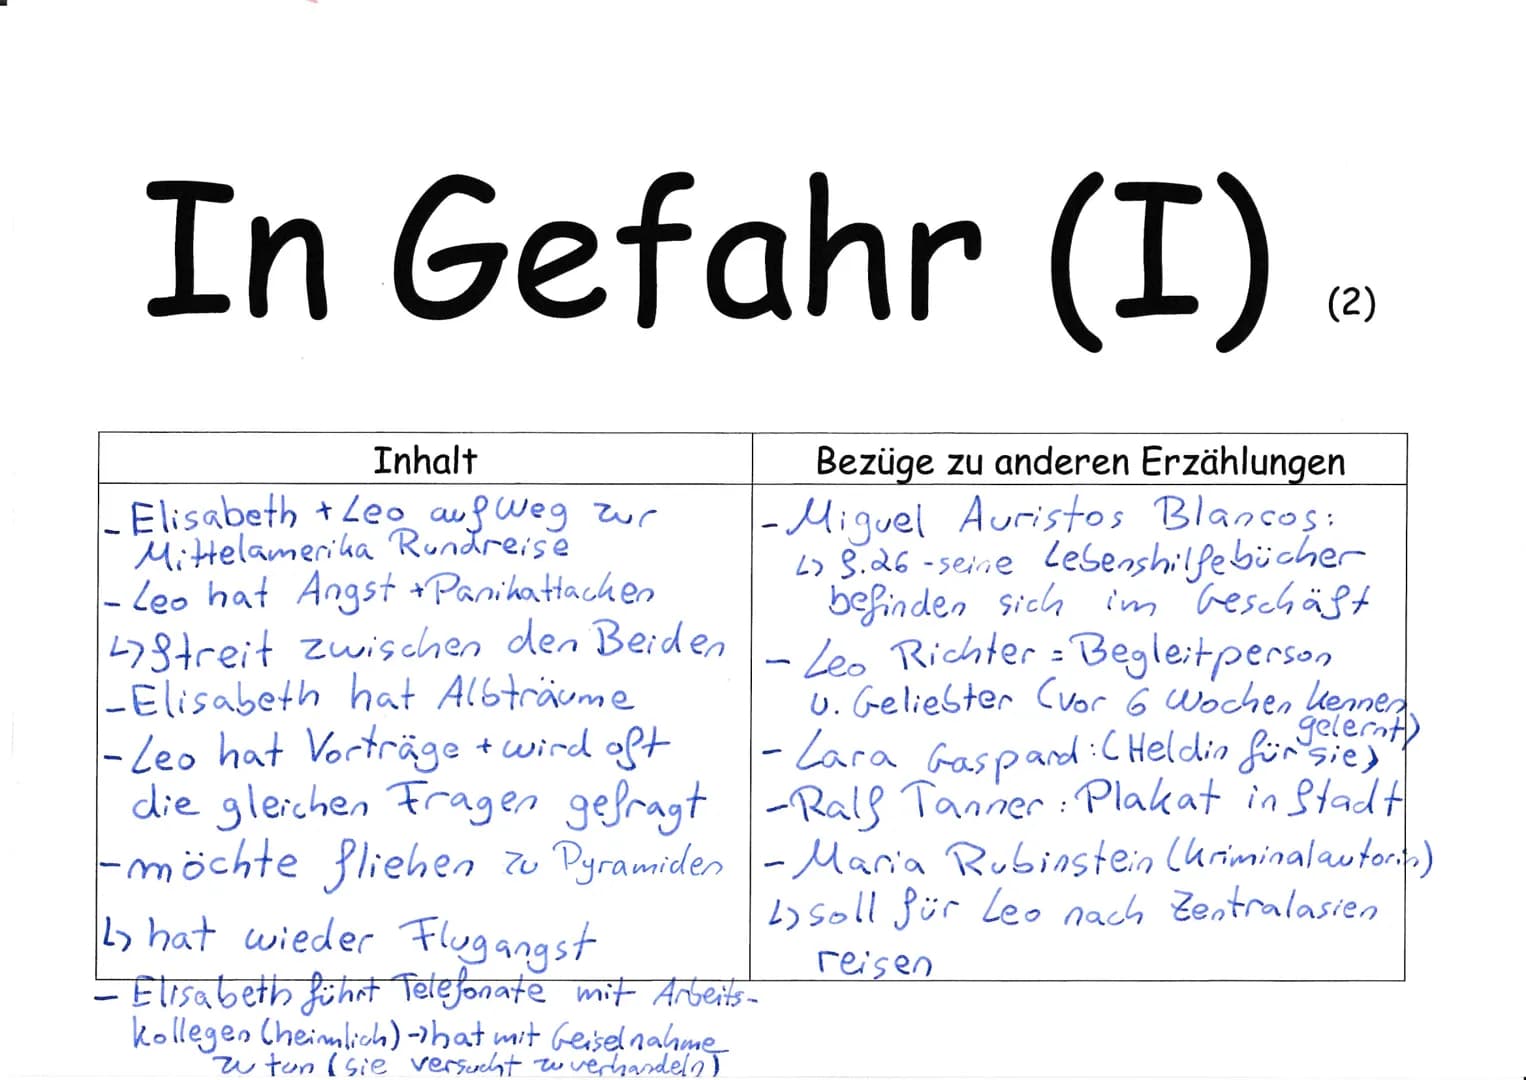 In Gefahr (I) (2)
Inhalt
- Elisabeth + Leo auf Weg zur
Mittelamerika Rundreise
- Leo hat Angst + Panikattacken
↳ Streit zwischen den Beiden
- Elisabeth hat Albträume
- Leo hat Vorträge + wird oft
die gleichen Fragen gefragt
- möchte fliehen zu Pyramiden
↳ hat wieder Flugangst
- Elisabeth führt Telefonate mit Arbeits-
kollegen (heimlich) → hat mit Geiselnahme
zu tun (sie versucht zu verhandeln)
Bezüge zu anderen Erzählungen
- Miguel Auristos Blancos:
↳ S.26 - seine Lebenshilfebücher
befinden sich im Geschäft
- Leo Richter = Begleitperson
u. Geliebter (vor 6 Wochen kennen
gelernt)
- Lara Gaspard: (Heldin für sie)
- Ralf Tanner: Plakat in Stadt
- Maria Rubinstein (Kriminalautorin)
↳ soll für Leo nach Zentralasien
reisen